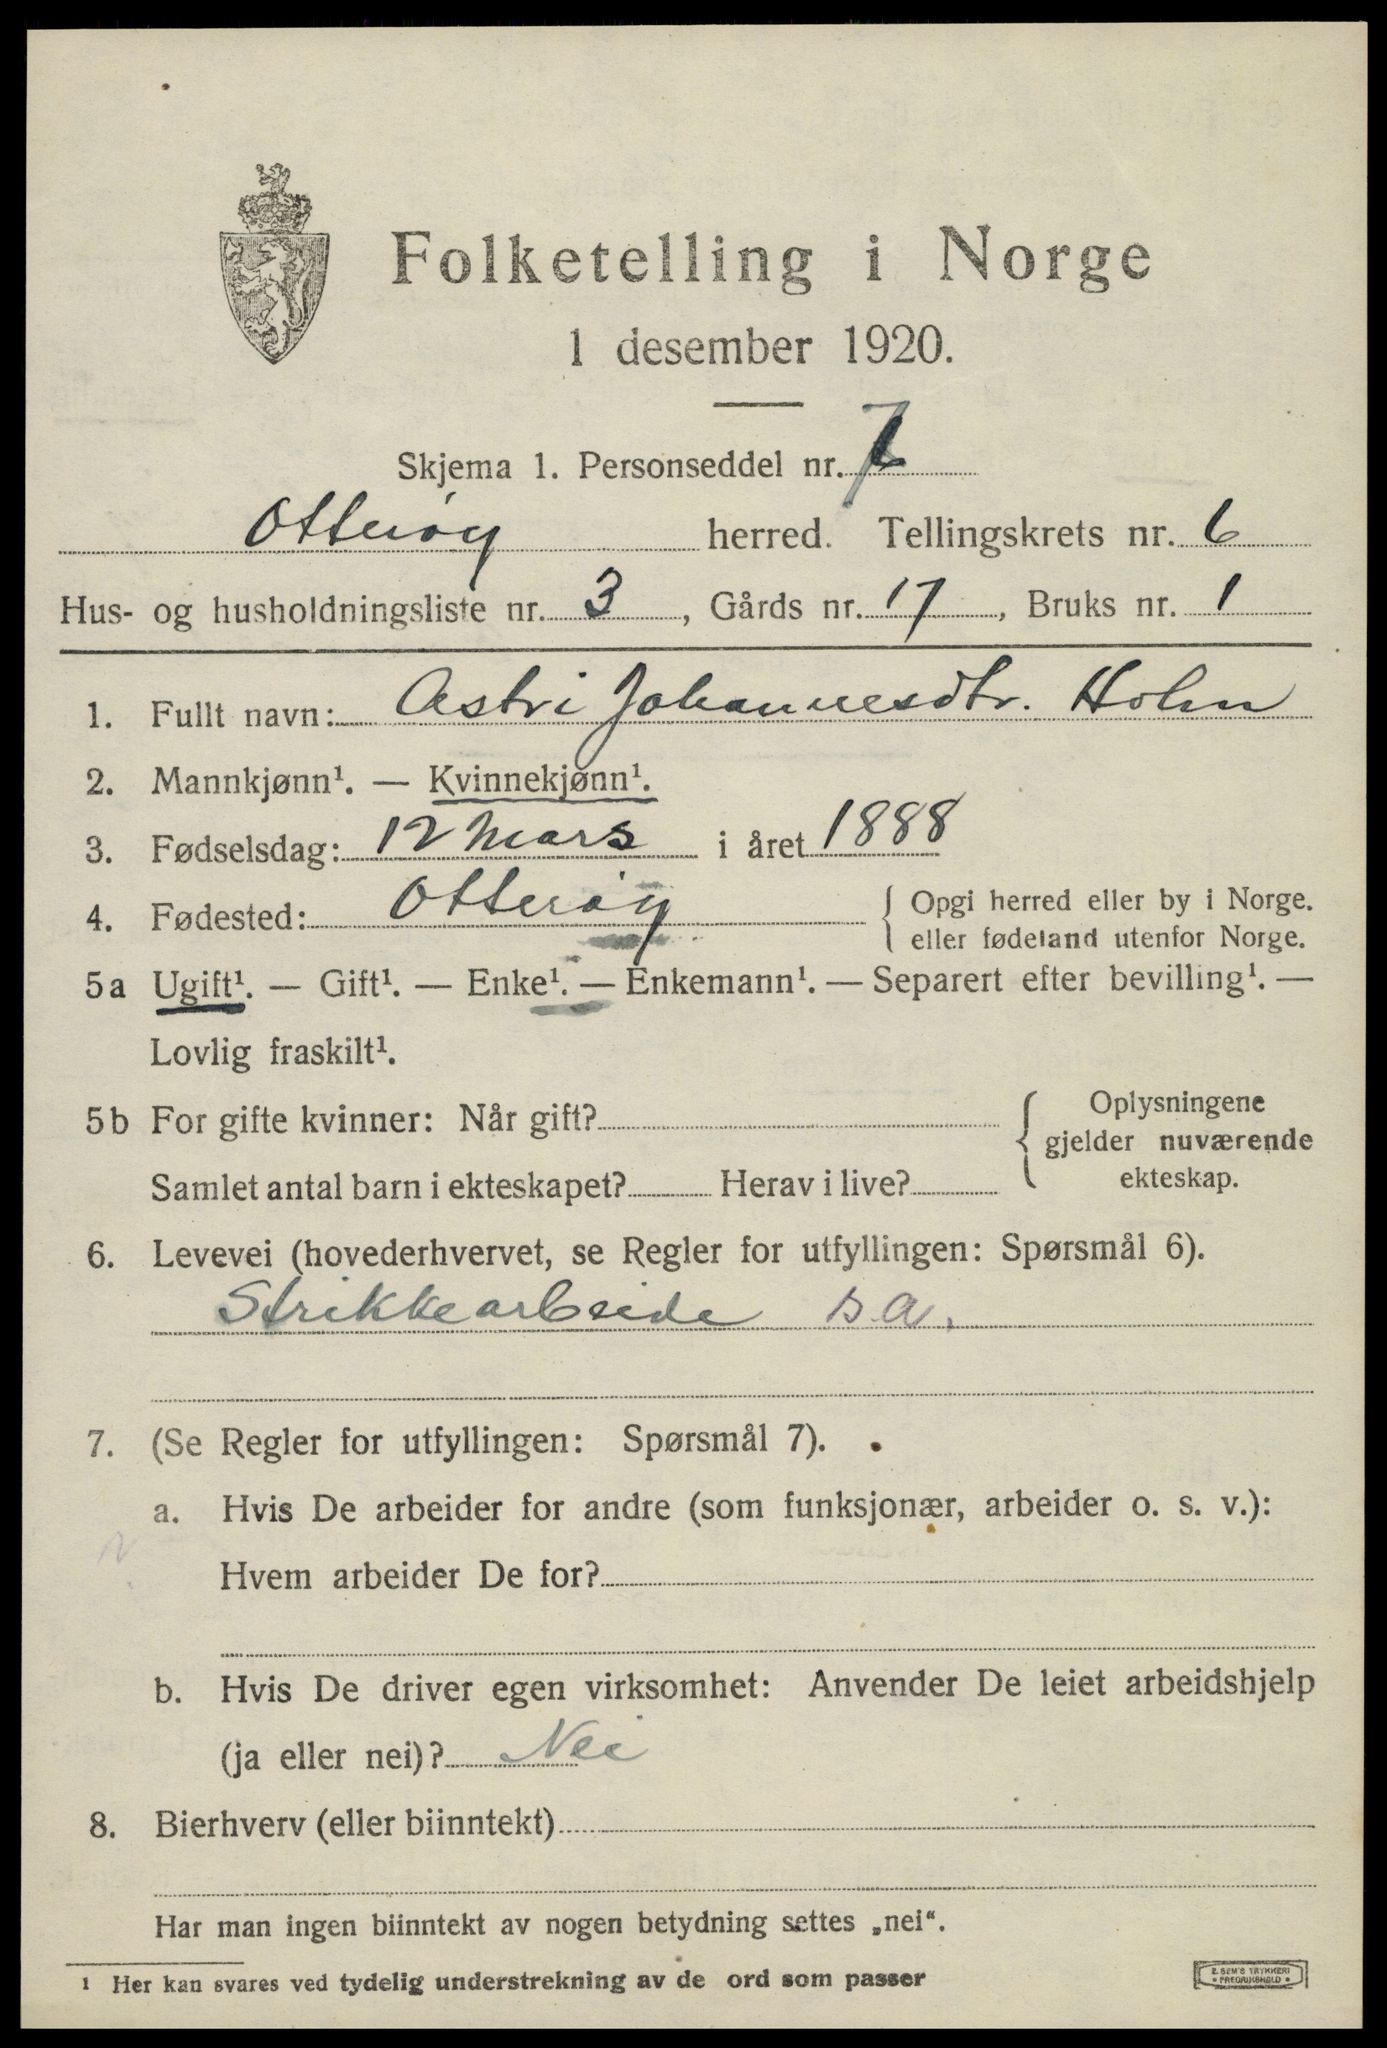 Folketelling i Norge
1 desember 1920.
Skjema 1. Personseddel nr. 7
Otterøy herred. Tellingskrets nr. 6
Hus- og husholdningsliste nr. 3, Gårds nr. 17, Bruks nr. 1
1. Fullt navn: Astri Johannesdtr. Holm
2. Mannkjønn¹. — Kvinnekjønn¹.
3. Fødselsdag: 12 Mars i året 1888
4. Fødested: Otterøy { Opgi herred eller by i Norge.
eller fødeland utenfor Norge.
5a Ugift¹. — Gift¹. — Enke¹. — Enkemann¹. — Separert efter bevilling¹. —
Lovlig fraskilt¹.
5b For gifte kvinner: Når gift? { Oplysningene
gjelder nuværende
ekteskap.
Samlet antal barn i ekteskapet? Herav i live?
6. Levevei (hovederhvervet, se Regler for utfyllingen: Spørsmål 6).
Strikkearbeide s.a.
7. (Se Regler for utfyllingen: Spørsmål 7).
a. Hvis De arbeider for andre (som funksjonær, arbeider o. s. v.):
Hvem arbeider De for?
b. Hvis De driver egen virksomhet: Anvender De leiet arbeidshjelp
(ja eller nei)? Nei
8. Bierhverv (eller biinntekt)
Har man ingen biinntekt av nogen betydning settes „nei“.
¹ Her kan svares ved tydelig understrekning av de ord som passer
E. SEM'S TRYKKERI
FREDRIKSHALD